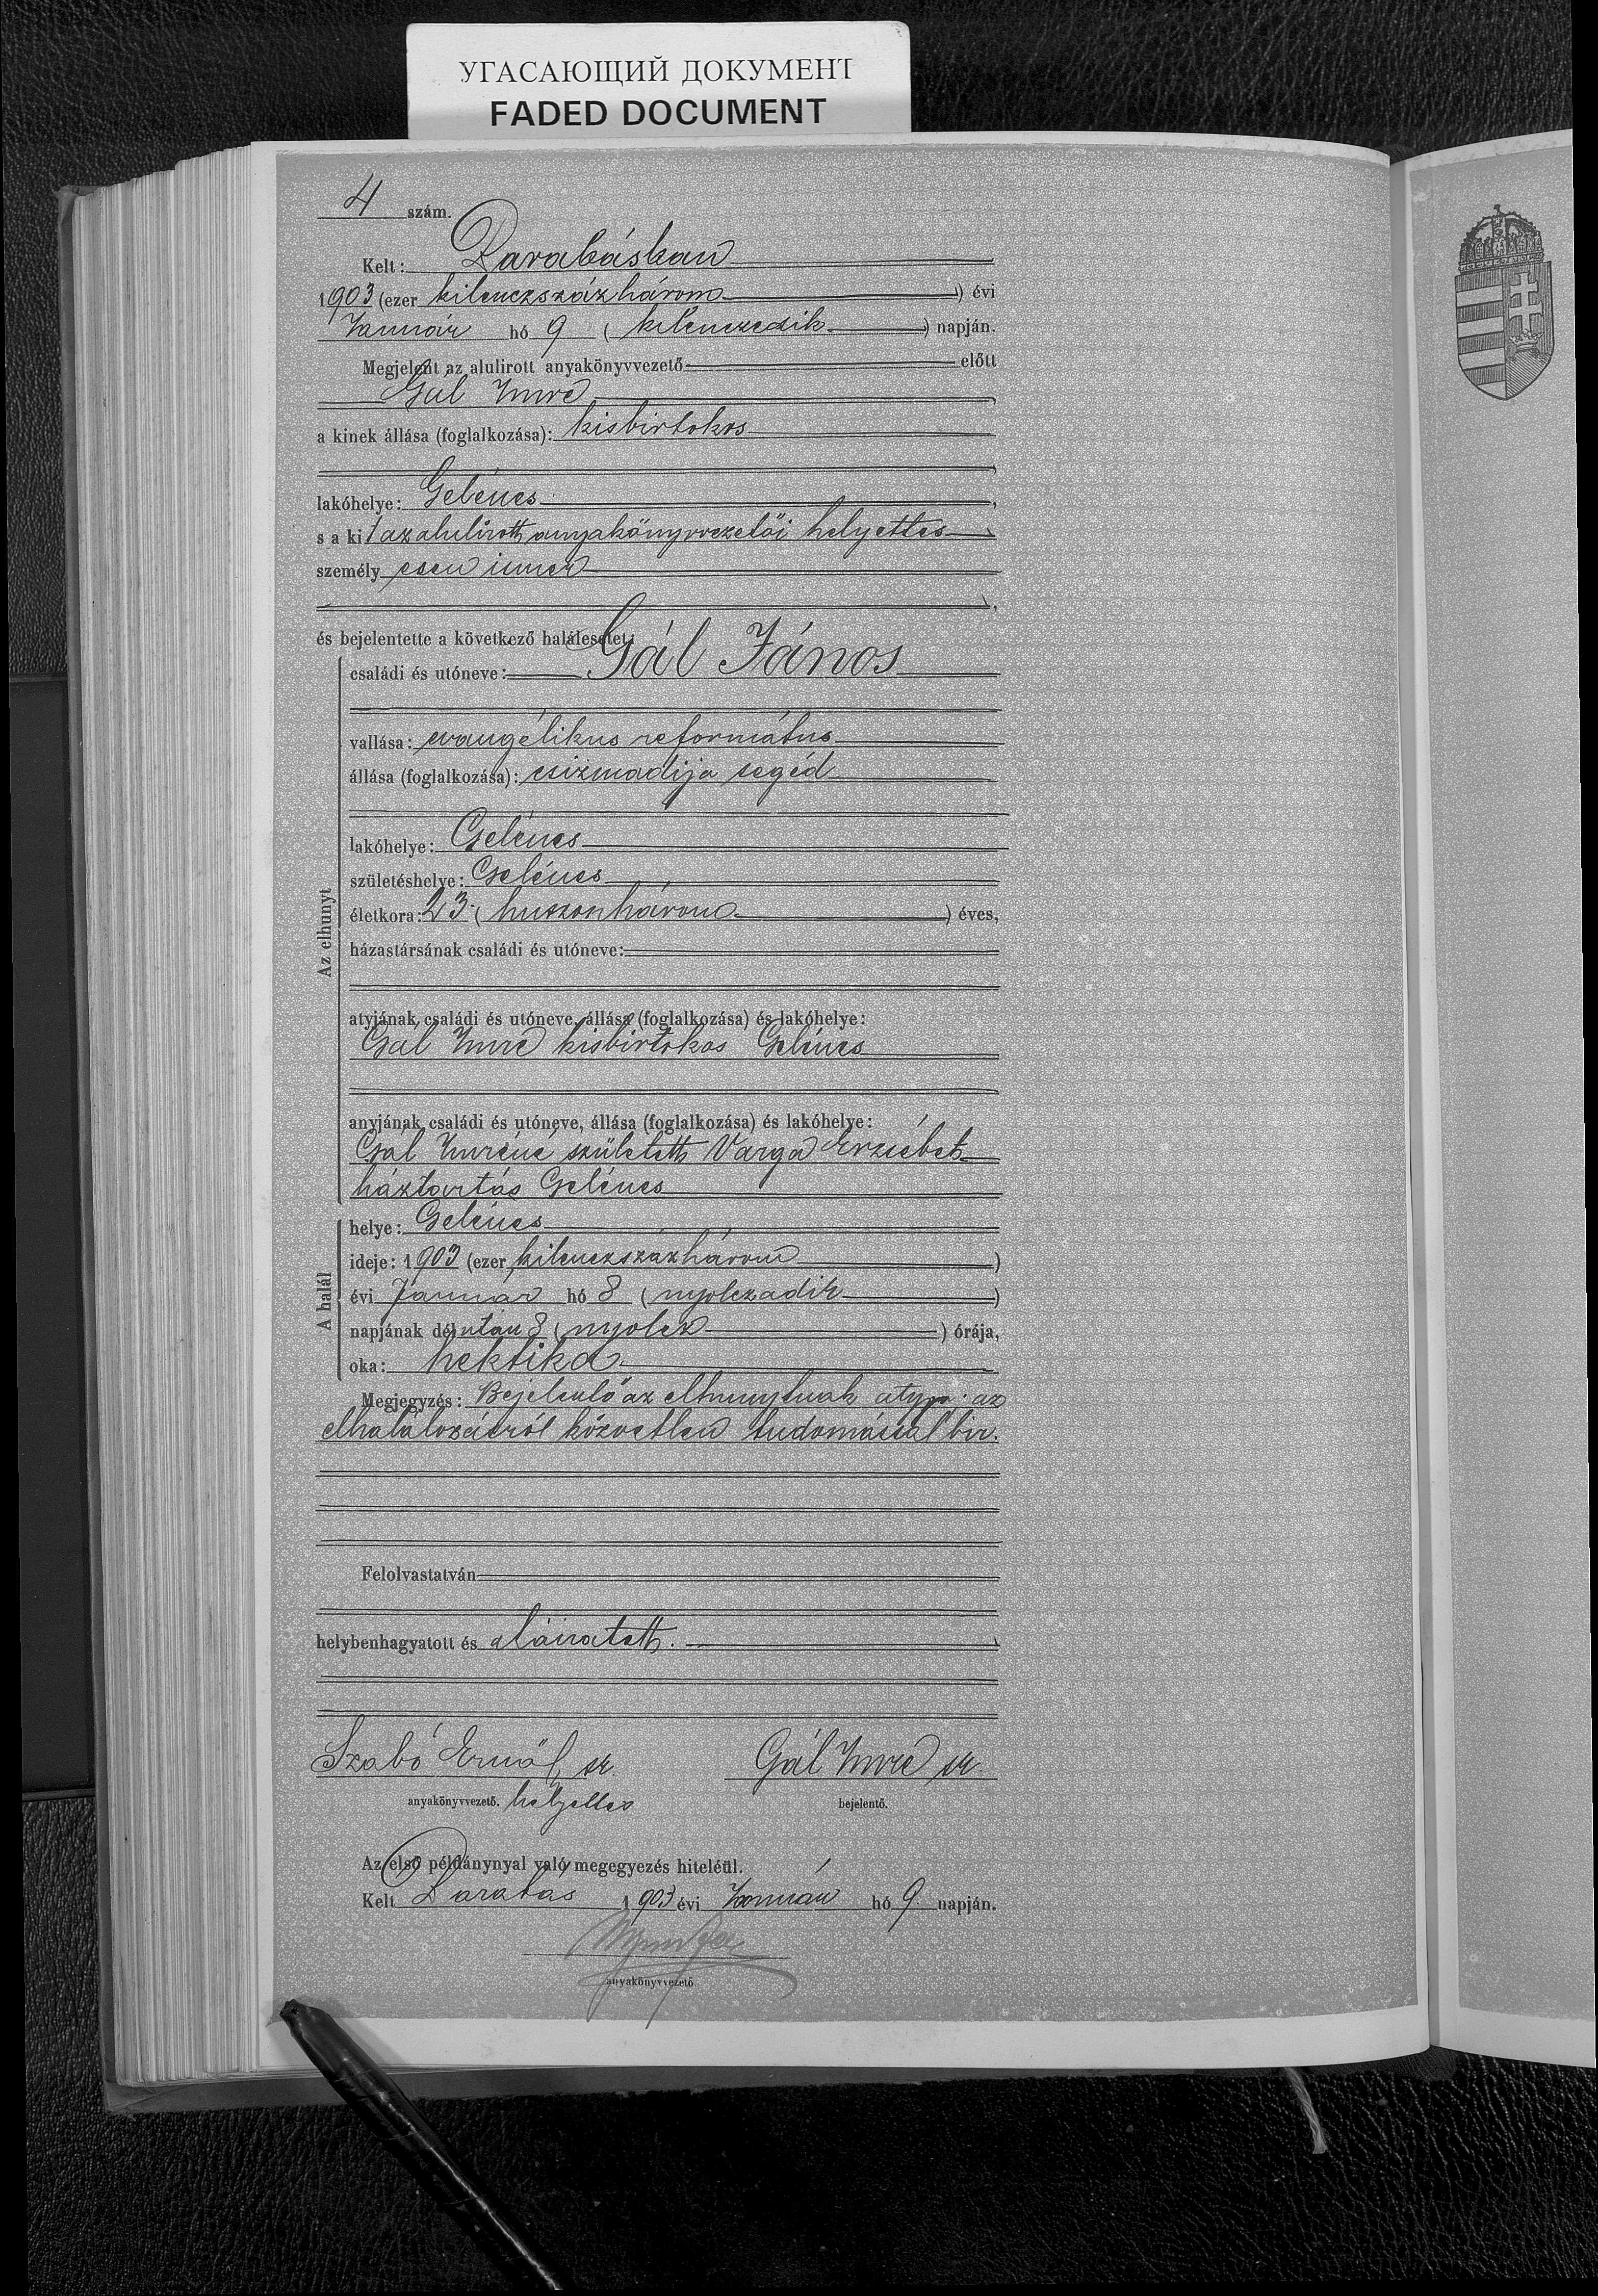 УГАСАЮЩИЙ ДОКУМЕНТ
FADED DOCUMENT
4 szám.
Kelt: Darabásban
1903 (ezer kilenczszázhárom) évi
Január hó 9 (kilenczedik) napján.
Megjelent az alulirott anyakönyvvezető előtt
Gál Imre,
a kinek állása (foglalkozása): kisbirtokos
lakóhelye: Gelénes,
s a kit az alulirott anyakönyvvezetői helyettes
személyesen ismer
és bejelentette a következő halálesetet:
Az elhunyt
családi és utóneve: Gál János
vallása: evangélikus református
állása (foglalkozása): csizmadija segéd
lakóhelye: Gelénes
születéshelye: Gelénes
életkora: 23 (huszonhárom) éves,
házastársának családi és utóneve:
atyjának családi és utóneve, állása (foglalkozása) és lakóhelye:
Gál Imre kisbirtokos Gelénes
anyjának családi és utóneve, állása (foglalkozása) és lakóhelye:
Gál Imréné született Varga Erzsébet
háztartás Gelénes
A halál
helye: Gelénes
ideje: 1903 (ezer kilenczszázhárom)
évi Január hó 8 (nyolczadik)
napjának délután 8 (nyolcz) órája,
oka: hektika
Megjegyzés: Bejelentő az elhunytnak atyja: az
elhalálozásról közvetlen tudomással bir.
Felolvastatván
helybenhagyatott és aláiratott.
Szabó Ernő sk Gál Imre sk
anyakönyvvezető. helyettes bejelentő.
Az első példánynyal való megegyezés hiteléül.
Kelt Darabás 1903 évi Január hó 9 napján.
anyakönyvvezető